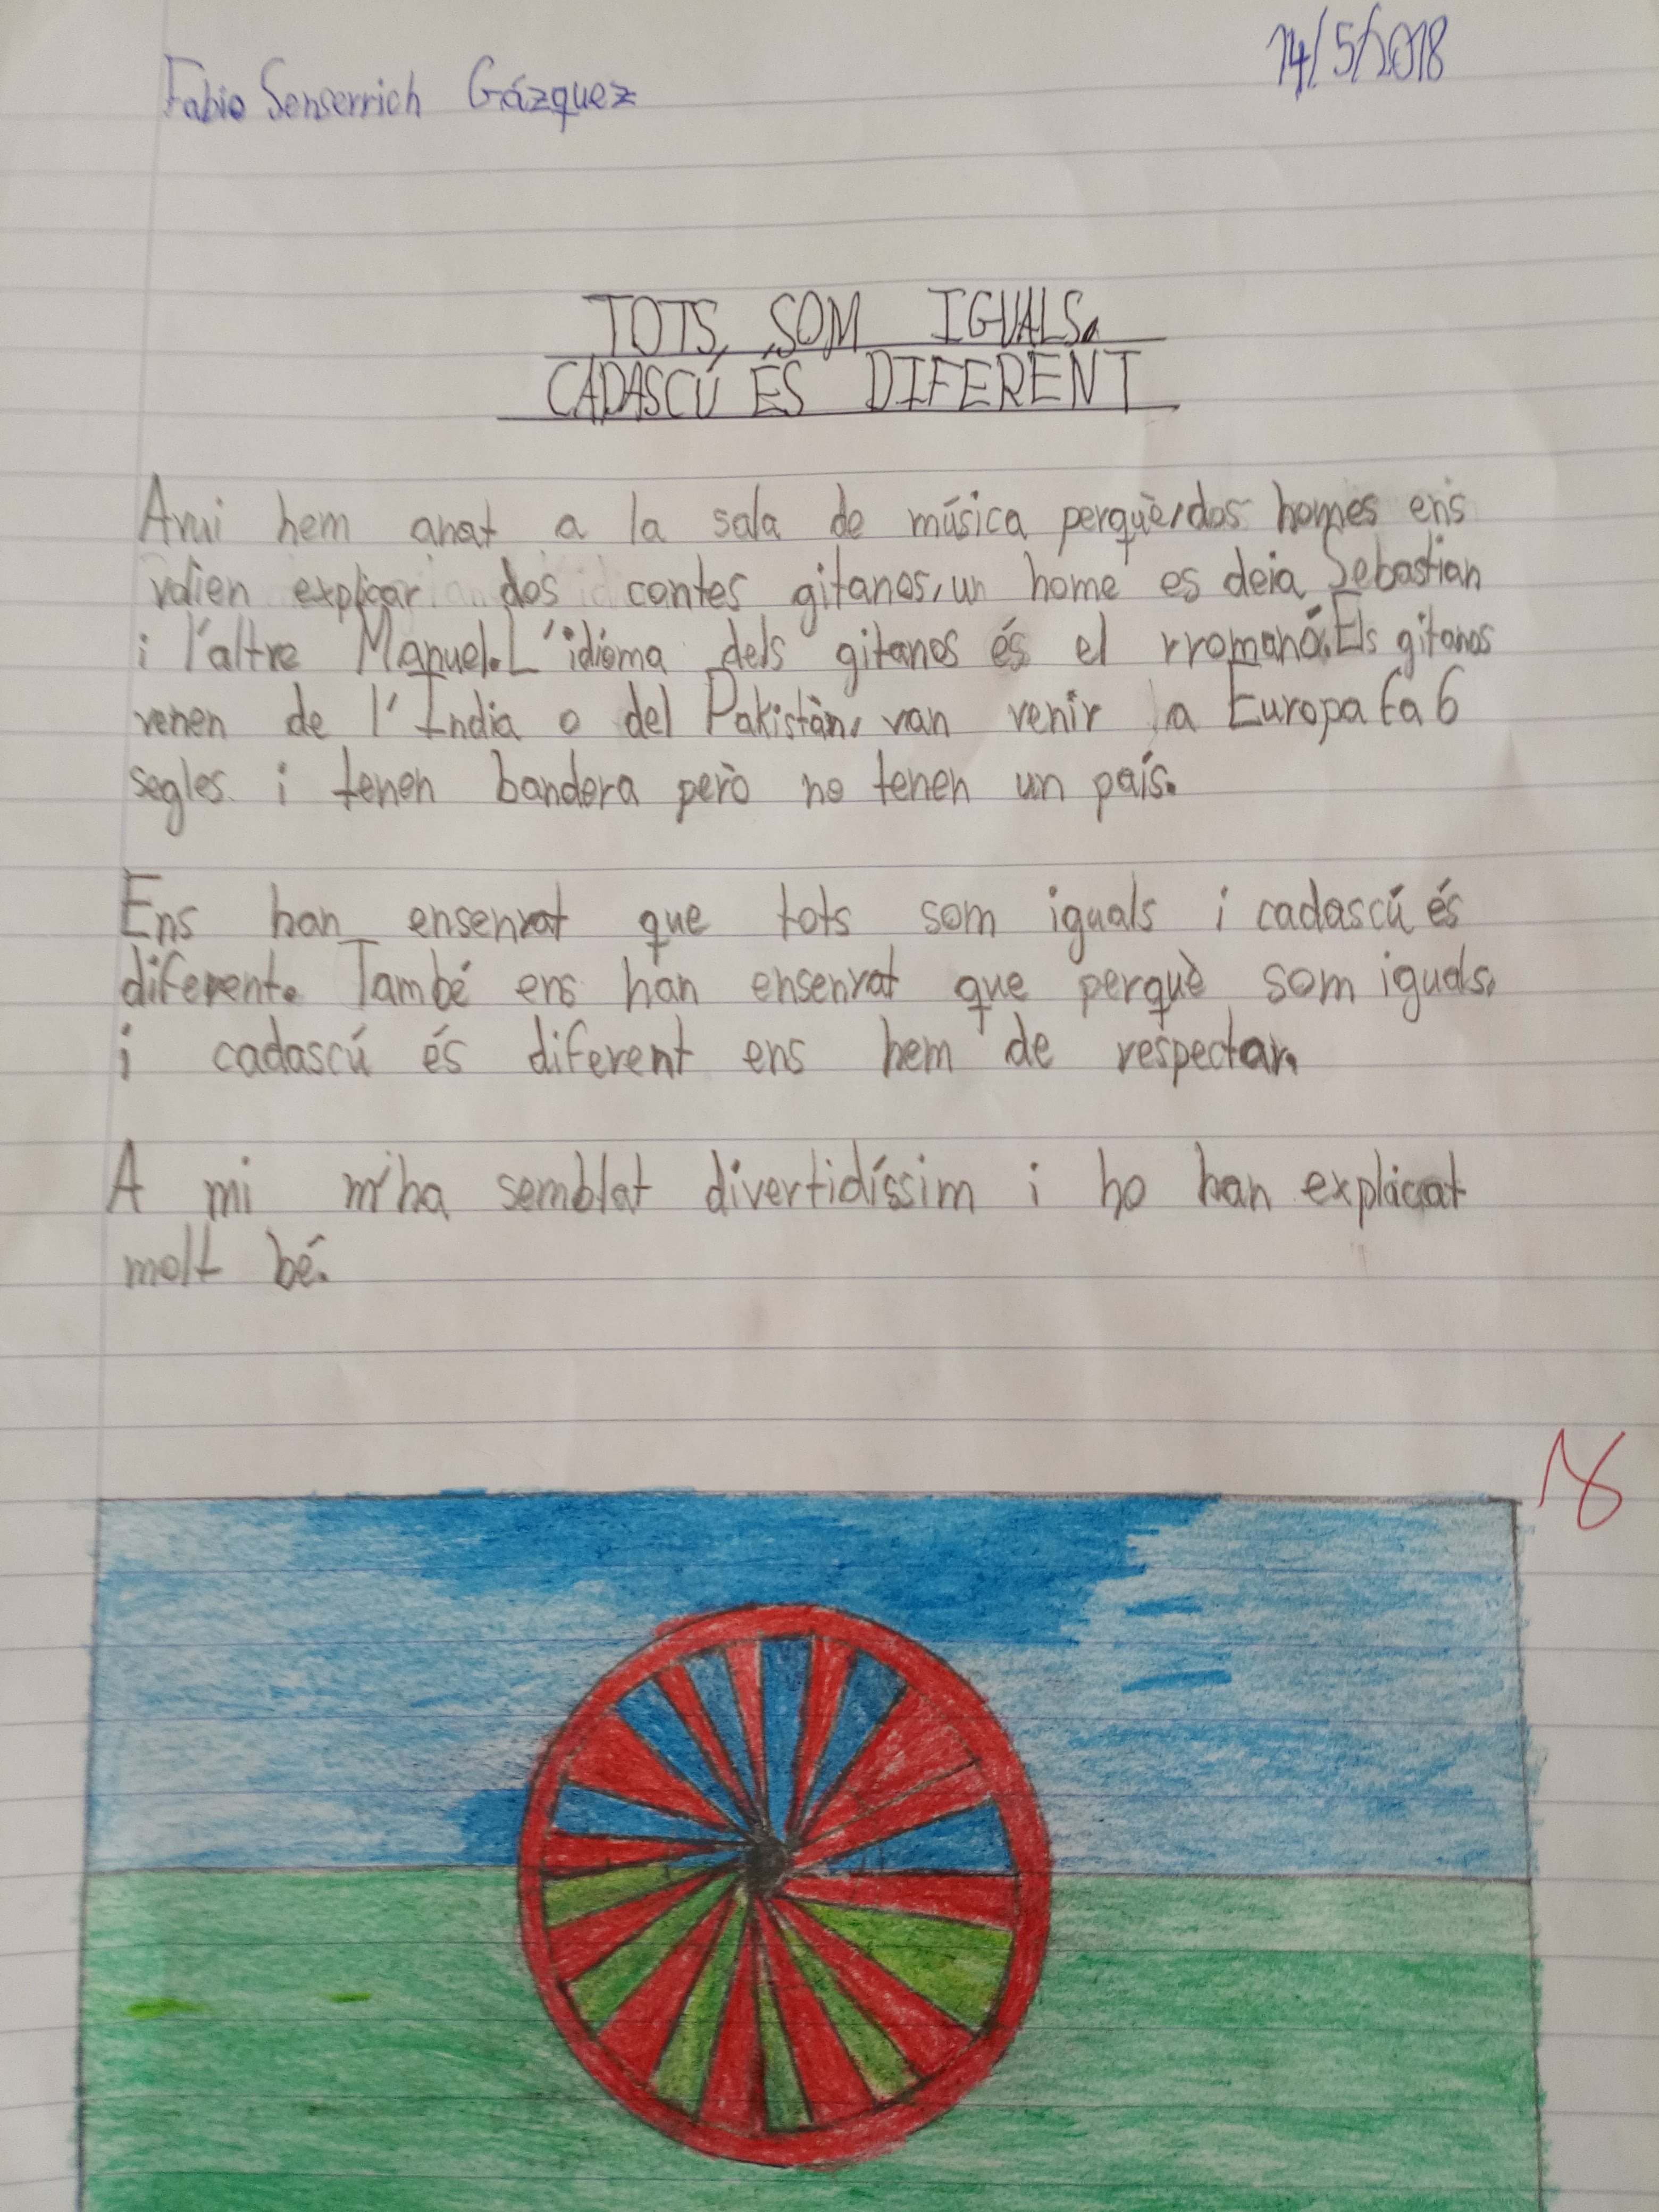 Fabio Senserrich Gázquez
14/5/2018
TOTS SOM IGUALS.
CADASCÚ ÉS DIFERENT
Avui hem anat a la sala de música perquè, dos homes ens
volien explicar dos contes gitanos, un home es deia Sebastian
i l'altre Manuel. L'idioma dels gitanos és el rromanó. Els gitanos
venen de l'Índia o del Pakistàn, van venir a Europa fa 6
segles i tenen bandera però no tenen un país.
Ens han ensenyat que tots som iguals i cadascú és
diferent. També ens han ensenyat que perquè som iguals,
i cadascú és diferent ens hem de respectar.
A mi m'ha semblat divertidíssim i ho han explicat
molt bé.